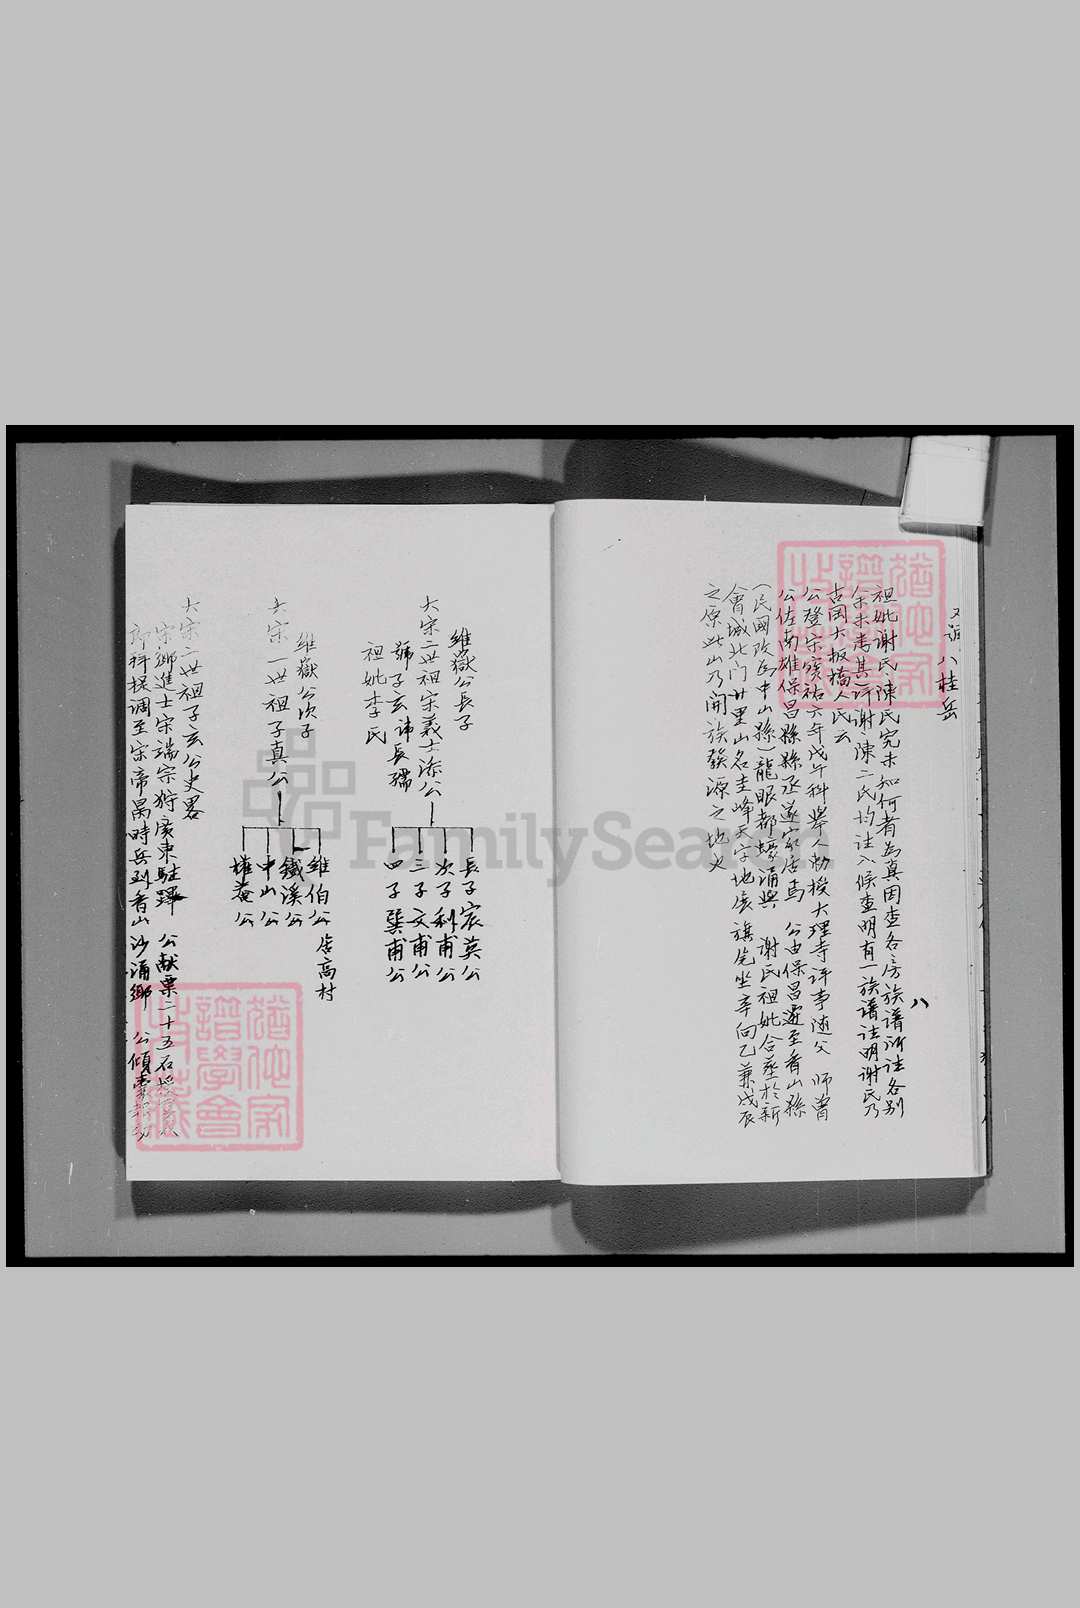 八桂岳
八
祖妣謝氏陳氏究未知何者為真因查各房族譜所注各別
余未考其詳謝陳二氏均注入候查明有一族譜注明謝氏乃
古岡大板橋人氏云
公登宋寶祐六年戊午科舉人勅授大理寺評事隨父 師曾
公佐南雄保昌縣縣丞遂家居焉 公由保昌遷至香山縣
(民國改為中山縣)龍眼都蠔涌與 謝氏祖妣合葬於新
會城北门廿里山名圭峰天字地 旗 坐辛向乙兼戌辰
之原此山乃開族發源之地也
維嶽公長子
大宗二世祖宋義士添公
號子玄諱長孺
祖妣李氏
長子宸英公
次子利甫公
三子文甫公
四子巽甫公
維嶽公次子
大宗一世祖子真公
維伯公居高村
鐵溪公
中山公
權菴公
大宗二世祖子玄公史畧
宋鄉進士宋端宗狩廣東駐蹕 公献粟二十五石
郎 提调至宋帝昺時兵到香山沙涌鄉 公傾
FamilySearch
譜學會